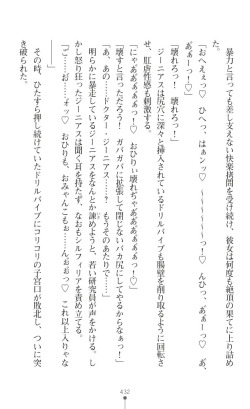 暴力と言っても差し支えない快楽拷問を受け続け、彼女は何度も絶頂の果てに上り詰め
た。
「おへぇぇっ♡　はぁンッ♡　っ！♡　んひぃっ♡　あぁーっ♡　ぁ、
あぁーっ！♡」
「壊れろっ！　壊れろっ！」
ジーニアスは尻穴に深々と挿入されているドリルパイプも腸壁を削り取るように回転さ
せ、肛虐性感も刺激する。
「にゃあああぁぁぁっ！♡　おひりぃ壊れぢゃああぁぁぁぁっ！♡」
「壊すと言っただろう！　ガバガバに拡張して閉じないバカ尻にしてやるからなぁっ！」
「あ、あの……ドクター・ジーニアス……？　もうそのあたりで……」
明らかに暴走しているジーニアスをなんとか諫めようと、若い研究員が声をかける。し
かし怒り狂ったジーニアスは聞く耳を持たず、なおもシルフィリアを責め立てた。
「ご……お……ォッ♡　おひりも、おみゃんこもぉ……んぉぉっ♡　これ以上入りゃな
い……っ！♡」
その時、ひたすら押し続けていたドリルパイプにコリコリの子宮口が敗北し、ついに突
き破られた。
432